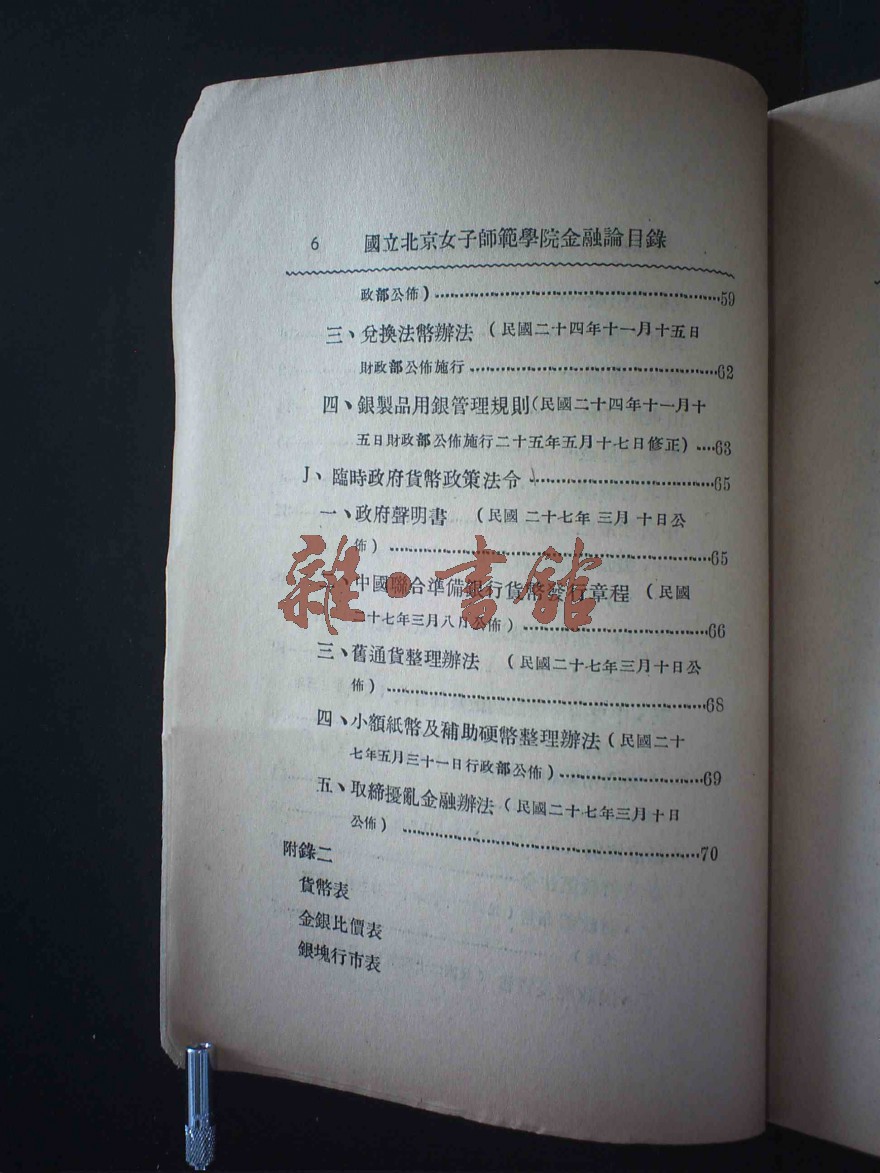 6 國立北京女子師範學院金融論目錄
政部公佈）59
三、兌換法幣辦法（民國二十四年十一月十五日
財政部公佈施行62
四、銀製品用銀管理規則（民國二十四年十一月十
五日財政部公佈施行二十五年五月十七日修正）63
J、臨時政府貨幣政策法令65
一、政府聲明書（民國二十七年三月十日公
佈）65
二、中國聯合準備銀行貨幣發行章程（民國
二十七年三月八月公佈）66
三、舊通貨整理辦法（民國二十七年三月十日公
佈）68
四、小額紙幣及補助硬幣整理辦法（民國二十
七年五月三十一日行政部公佈）69
五、取締擾亂金融辦法（民國二十七年三月十日
公佈）70
附錄二
貨幣表
金銀比價表
銀塊行市表
雜·書館